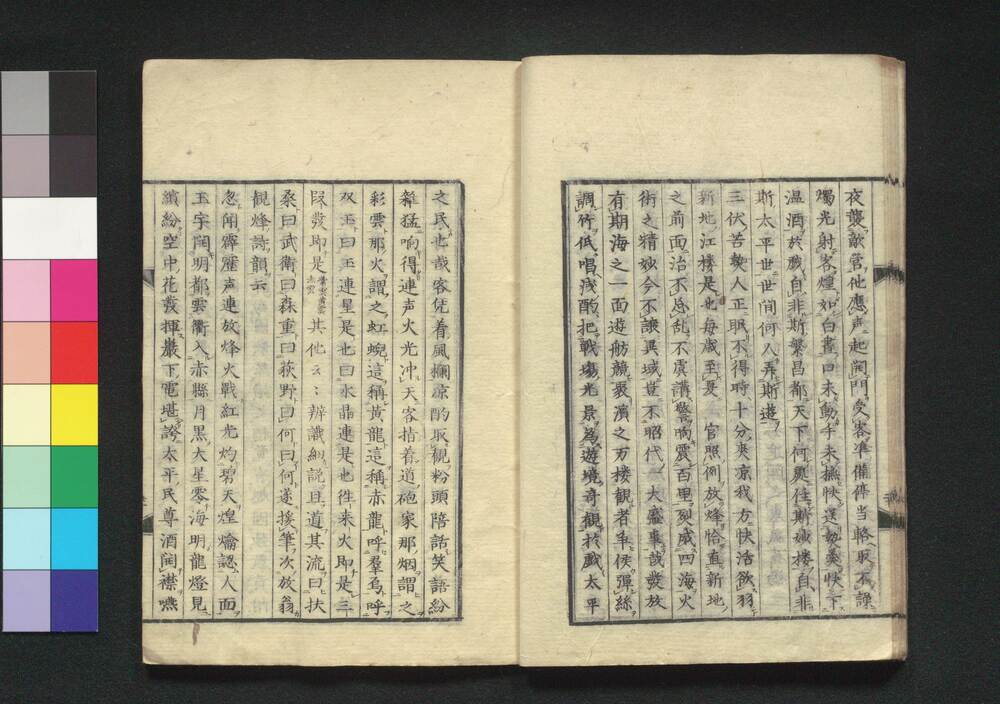 夜襲敵営他應声起開門受客準備停当略取不譟
燭光射客煌如白晝口未動手未撫快送勃羹快下
温酒於戯自非斯繁昌都天下何奥住斯妓楼自非
斯太平世世間何人弄斯遊
三伏苦熱人正眠不得時十分爽凉我方快活欲羽
新地江楼是也毎歳至夏 官照例放烽恰直新地
之前面治不忘乱不震講警响震百里烈威四海火
術之精妙今不譲異域豈不昭代一大盛事哉發放
有期海之一面遊舫競裹濱之万楼観者争俟弾絲
調竹低唱浅酌把戦場光景為遊境奇観於戯太平
之民也哉客凭着風欄凉酌取観粉頭陪話笑語紛
雑猛响得連声火光冲天客指着道砲家那烟謂之
彩雲那火謂之虹蜺這称黄龍這称赤龍呼羣烏呼
双玉曰玉連星是也曰水晶連是也徃来火即是三
段發即是其他云々辨識細説且道其流曰扶
桑曰武衛曰森重曰荻野曰何曰何遂援筆次放翁
観烽詩韻云
忽聞霹靂声連放烽火戦紅光灼碧天煌爚認人面
玉宇開明都雲衢入赤縣月黒大星零海明龍燈見
繽紛空中花發揮巌下電堪誇太平民尊酒開襟嚥